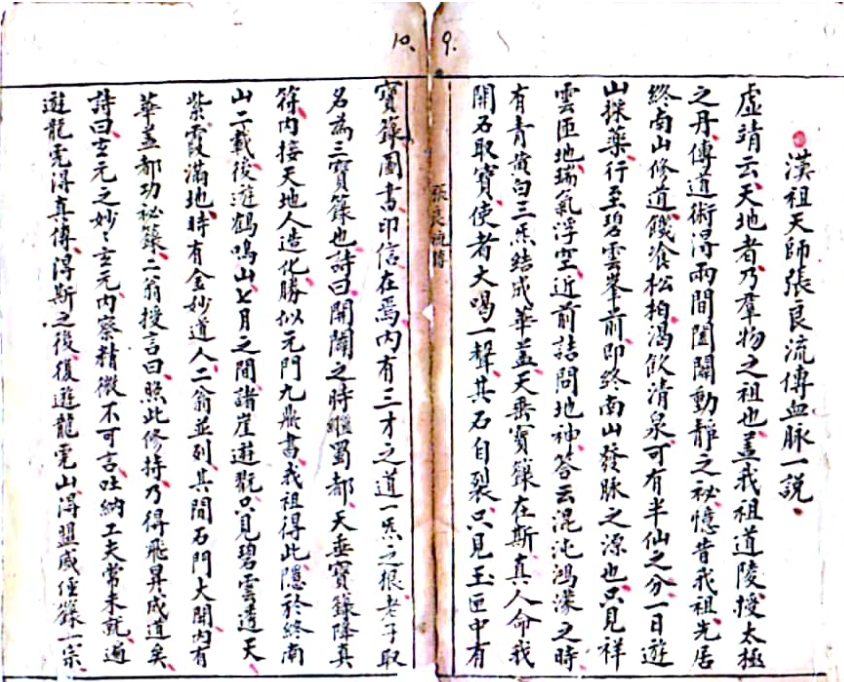 9.
漢祖天師張良流傳血脉一説
虛靖云天地者乃羣物之祖也蓋我祖道陵授太極
之丹傳道術得兩間闔闢動靜之秘憶昔我祖先居
終南山修道饑飡松柏渴飲清泉可有半仙之分一日遊
山採藥行至碧雲峯前即終南山發脉之源也只見祥
雲匝地瑞氣浮空近前詰問地神答云混沌鴻濛之時
有青黄白三炁結成華盖天垂寳籙在斯真人命我
開石取寳使者大喝一聲其石自裂只見玉匣中有
張良流傳
10.
寳籙圖書印信在焉内有三才之道一炁之根老子取
名為三寳籙也詩曰開闢之時 蜀都天垂寳籙降真
符内接天地人造化勝似元門九鼎書我祖得此隱於終南
山二載後遊鶴鳴山七月之間諸崖遊翫只見碧雲透天
紫霞滿地時有金妙道人二翁並列其間石門大開内有
華盖都功秘籙二翁授言曰照此修持乃得飛昇成道矣
詩曰玄元之妙妙玄元内察精微不可言吐納工夫常未就遍
遊龍虎得真傳得斯之後復遊龍虎山得盟威經籙一宗